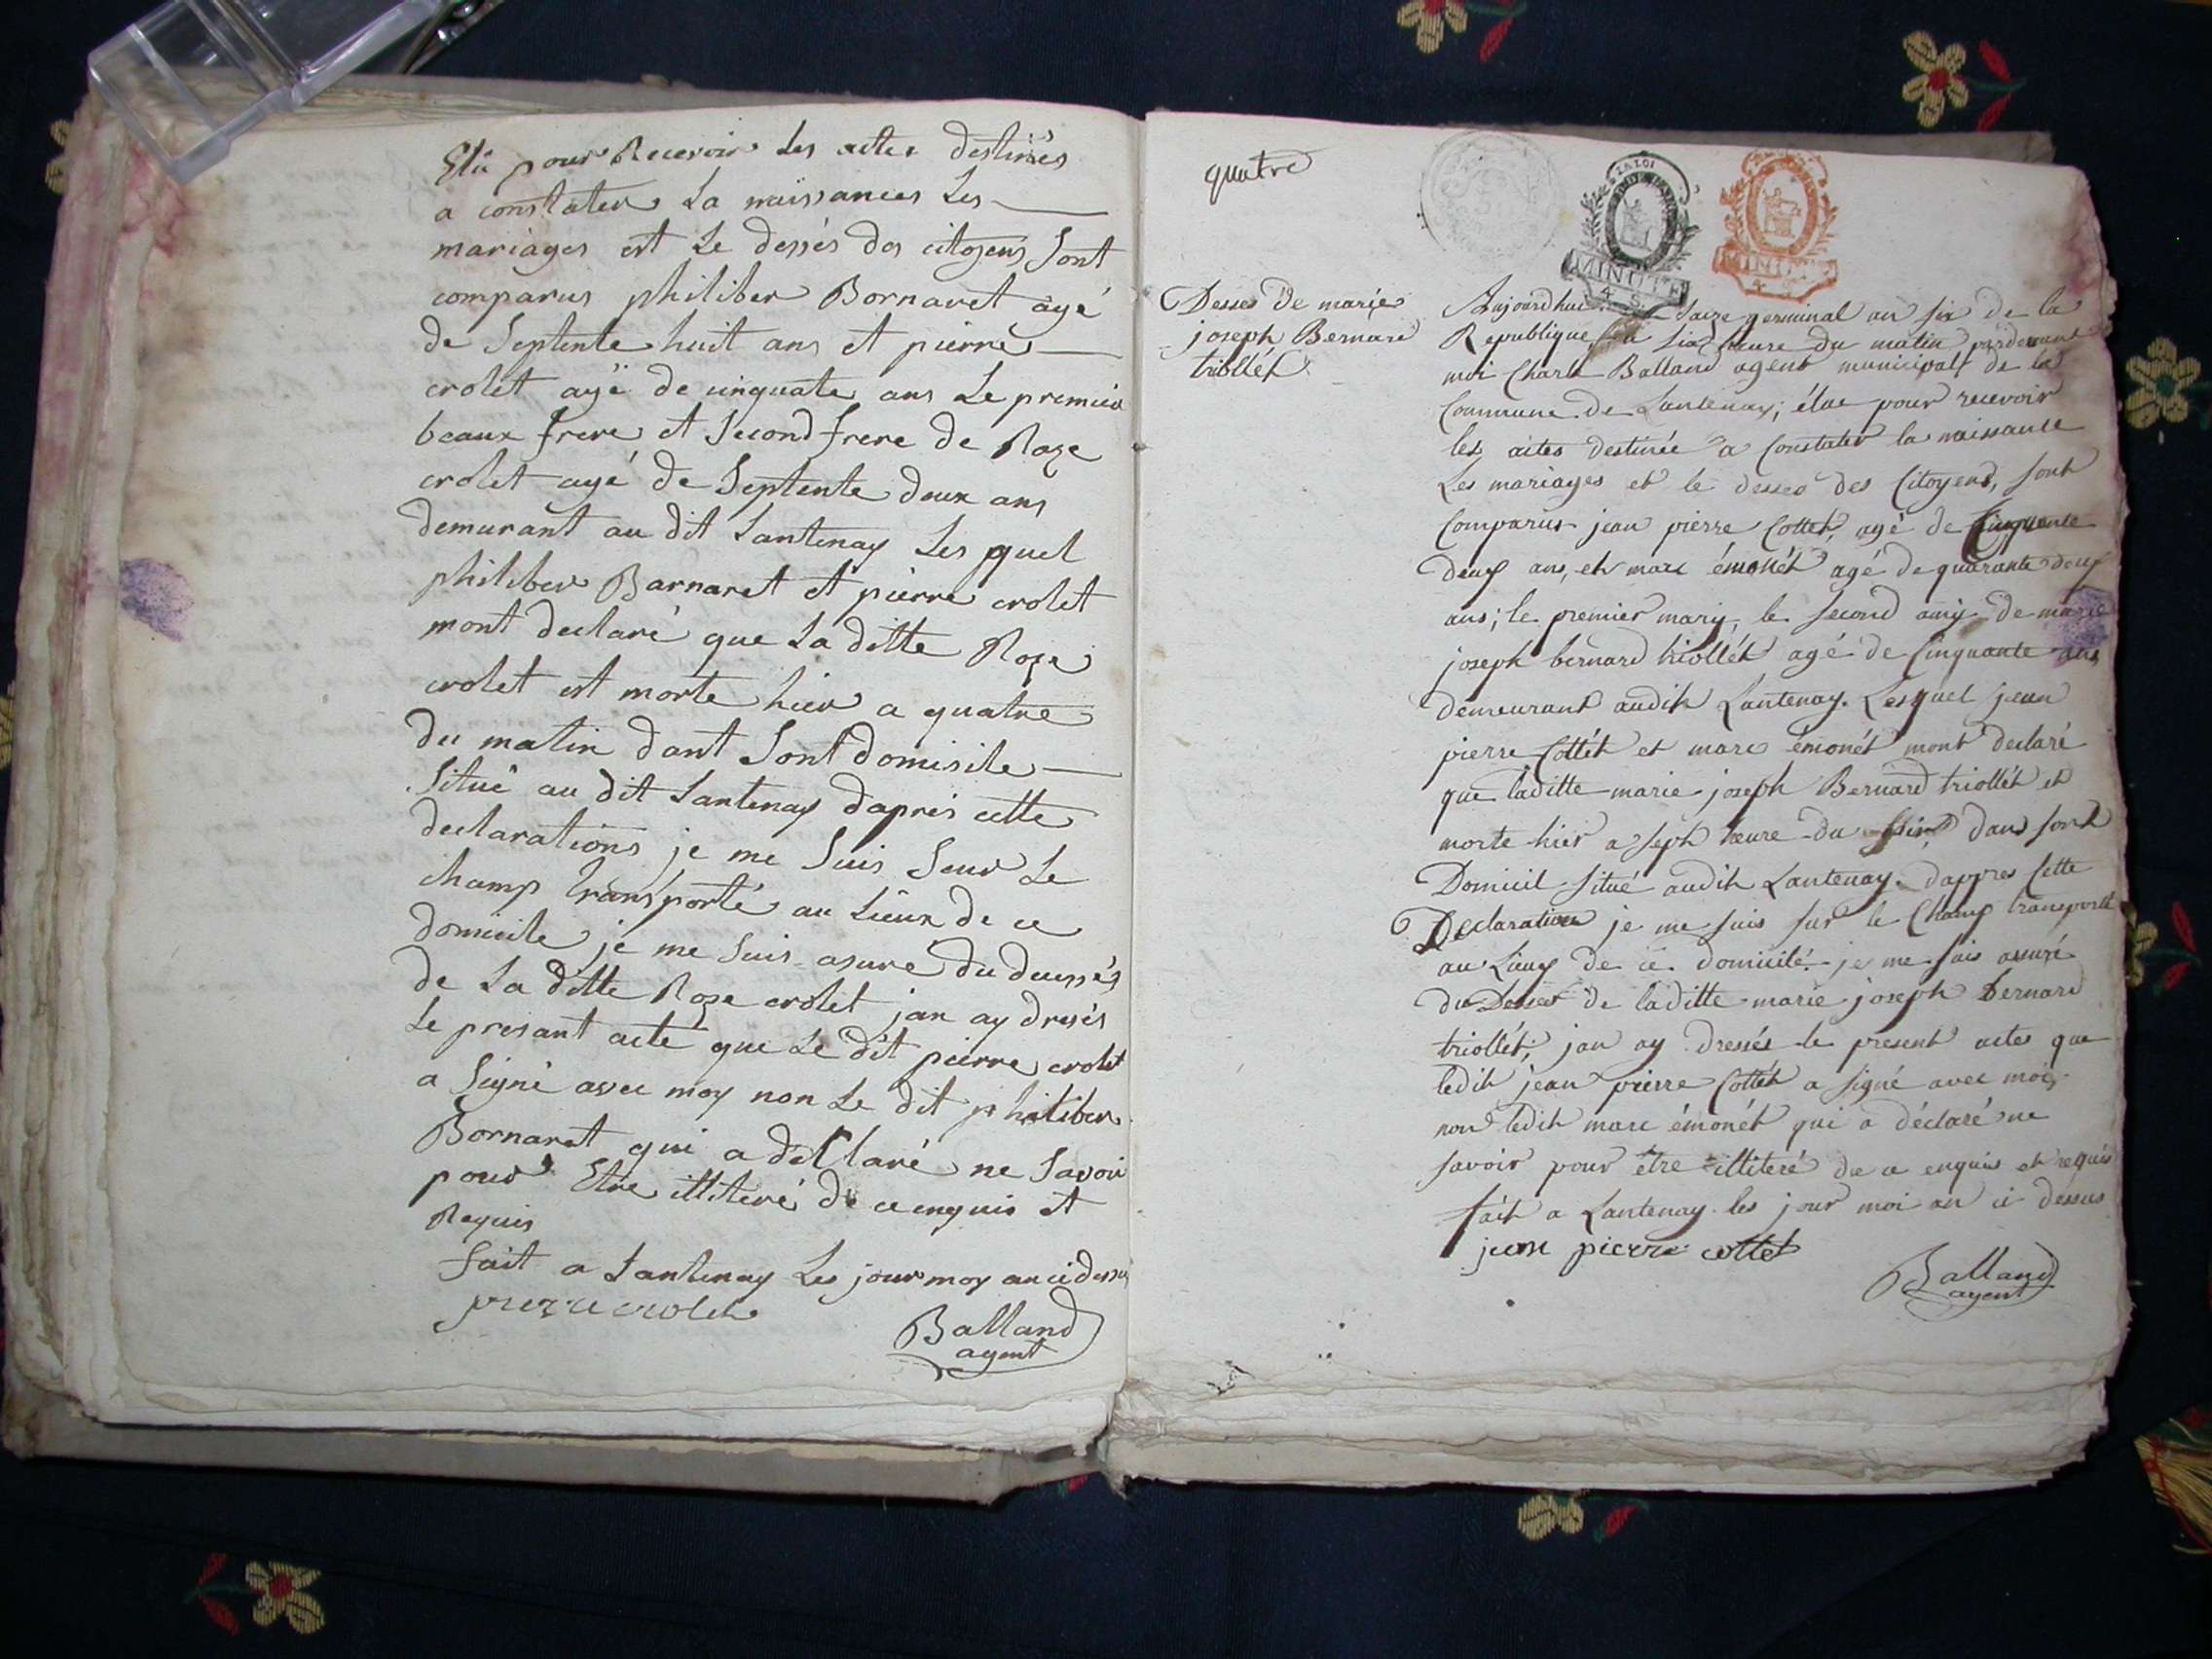 Elü pour Recevoir Les actes destinées
a constater La naissances Les
mariages est Le dessés des citoyens Sont
comparus philiber Bornaret agé
de Septente huit ans et pierre
crolet agé de cinquate ans Le premier
beaux frere et Second frere de Roze
crolet agé de Septente deux ans
demurant au dit Lantenay Les quel
philiber Barnaret et pierre crolet
mont declaré que La ditte Roze
crolet est morte hier a quatre
du matin dant Sont domisile
Situé au dit Lantenay dapres cette
declarations je me Suis Seur Le
champ transporté au Lieux de ce
domicile je me Suis asuré du decessés
de La ditte Roze crolet jan ay dresés
Le presant acte que Le dit pierre crolet
a Signé avec moy non Le dit philiber
Bornaret qui a declaré ne Savoir
pour Etre illiteré de ce enquis et
Requis
fait a Lantenay Les jour moy an ci dessu
pierre crolet
Balland
agent
quatre
LA LOI
MINUTE
4 S.
MINUTE
4 S.
Desses de marie
joseph Bernard
triollét
Aujourdhui saize germinal an six de la
Republique a six heure du matin pardevant
moi Charle Balland agent municipalt de la
Commune de Lantenay; élue pour recevoir
les actes destinée a Constater la naissance
Les mariages et le desses des Citoyens, sont
Comparus jean pierre Cottet, agé de Cinquante
deux ans, et marc émonét agé de quarante deux
ans; le premier mary, le second amy de marie
joseph bernard triollét agé de Cinquante ans
demeurant audit Lantenay. Lesquel jean
pierre Cottét et marc émonét mont declaré
que laditte marie joseph Bernard triollét et
morte hier a sept heure du soir dans sont
Domicil situé audit Lantenay. dappres Cette
Declaration je me suis sur le Champ transporté
au Lieux de ce domicile. je me suis assuré
du Desses de laditte marie joseph Bernard
triollét; jan ay dressés le present actes que
ledit jean pierre Cottét a signé avec moi,
non ledit marc émonét qui a déclaré ne
savoir pour être illiteré de ce enquis et requis
fait a Lantenay les jour moi an ci dessus
jean pierre cottet
Balland
agent